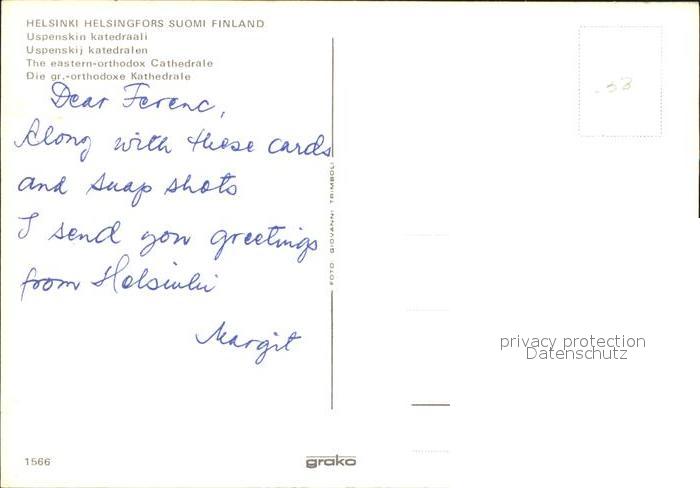 HELSINKI HELSINGFORS SUOMI FINLAND
Uspenskin katedraali
Uspenskij katedralen
The eastern-orthodox Cathedrale
Die gr.-orthodoxe Kathedrale
Dear Ferenc,
Along with these cards
and snap shots
I send you greetings
from Helsinki
Margit
FOTO: GIOVANNI TRIMBOLI
privacy protection
Datenschutz
1566
grako